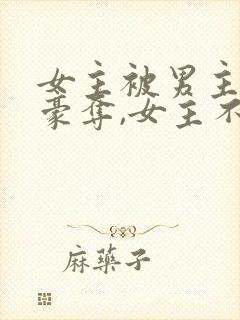 女主被男主
豪夺,女主不
麻藥子